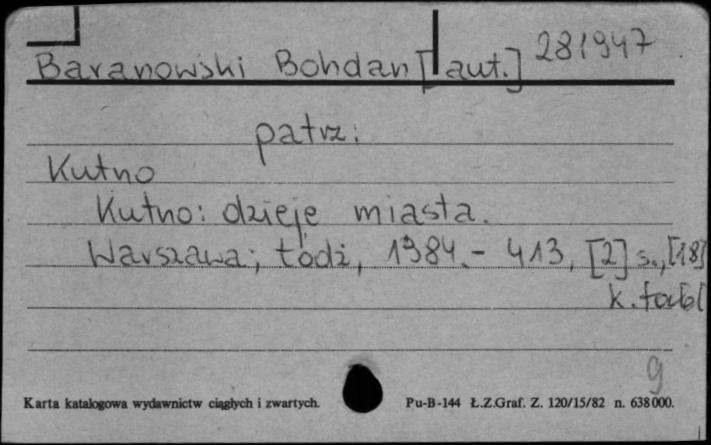 Baranowski Bohdan [aut.] 281947
patrz:
Kutno
Kutno: dzieje miasta.
Warszawa; Łódź, 1984.- 413, [2] s., [18]
k. tabl
9
Karta katalogowa wydawnictw ciągłych i zwartych. Pu-B-144 Ł.Z.Graf. Z. 120/15/82 n. 638 000.